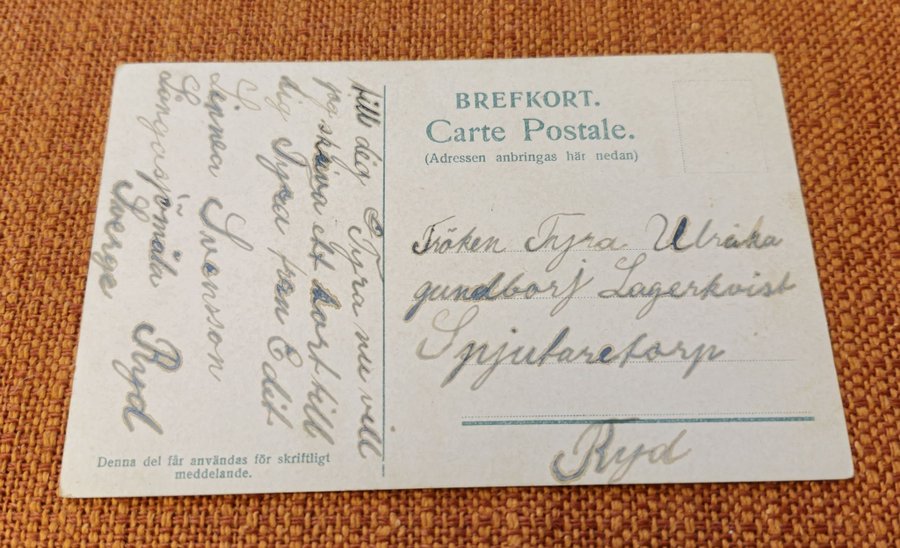 till dig Tyra nu vill
jag skriva ett kort till
dig Tyra från Edit
Linnea Svensson
Långasjömåla Ryd
Sverge
Denna del får användas för skriftligt
meddelande.
BREFKORT.
Carte Postale.
(Adressen anbringas här nedan)
Fröken Tyra Ulrika
gundborj Lagerkvist
Spjutaretorp
Ryd